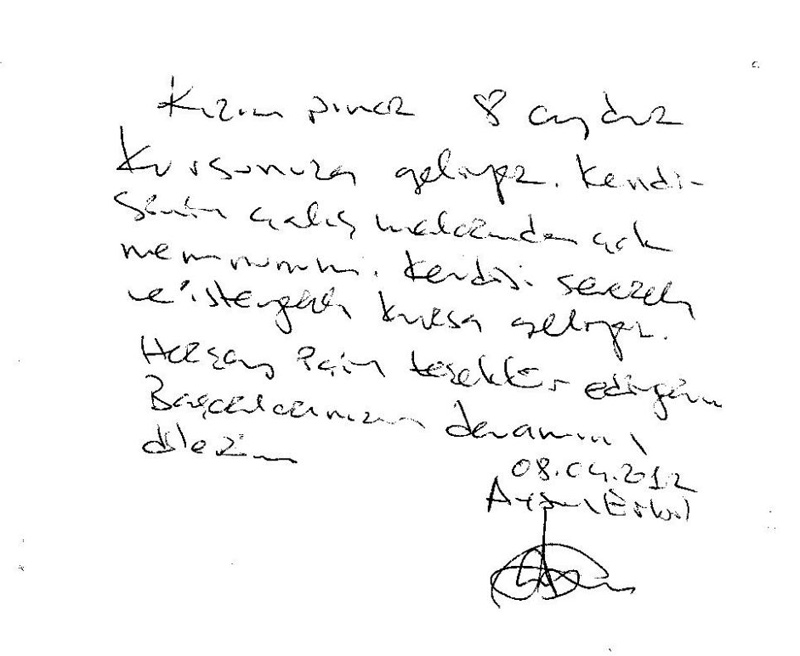 Kızım pınar 8 aydır
Kursunuza geliyor. Kendi-
sinin çalışmalarından çok
memnunum. Kendisi severek
ve isteyerek kursa geliyor.
Herşey için teşekkür ediyorum
Başarılarınızın devamını
dilerim
08.04.2012